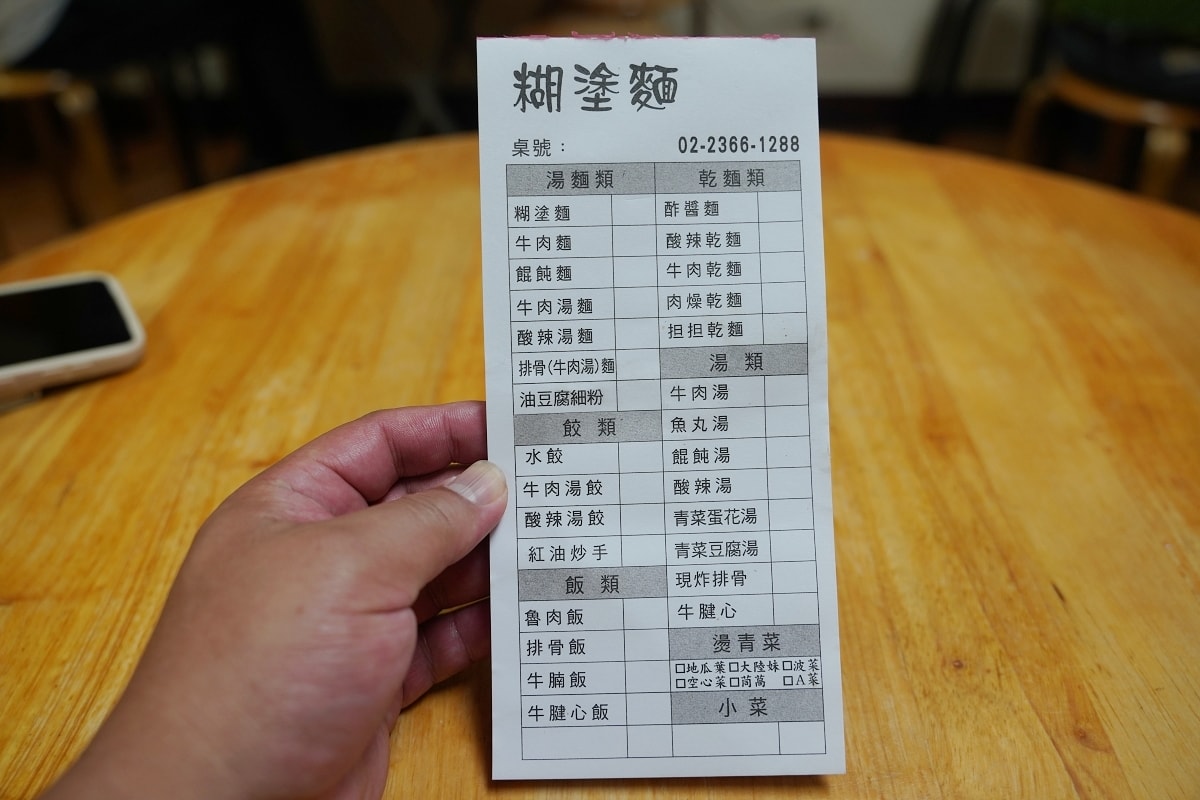 糊塗麵
桌號：
02-2366-1288
湯麵類
糊塗麵
牛肉麵
餛飩麵
牛肉湯麵
酸辣湯麵
排骨(牛肉湯)麵
油豆腐細粉
餃類
水餃
牛肉湯餃
酸辣湯餃
紅油炒手
飯類
魯肉飯
排骨飯
牛腩飯
牛腱心飯
乾麵類
酢醬麵
酸辣乾麵
牛肉乾麵
肉燥乾麵
担担乾麵
湯類
牛肉湯
魚丸湯
餛飩湯
酸辣湯
青菜蛋花湯
青菜豆腐湯
現炸排骨
牛腱心
燙青菜
□地瓜葉□大陸妹□波菜
□空心菜□茼萵 □A菜
小菜